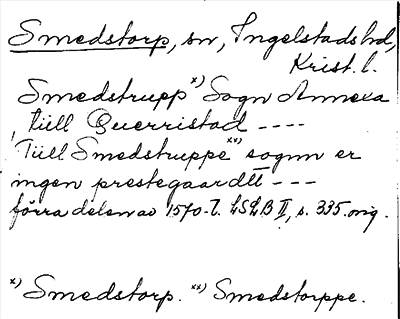 Smedstorp, sn, Ingelstads hd,
Krist. l.
Smedstrupp x) Sogn Annexa
, tiill Querristad ----
Tiill Smedstruppe xx) sognn er
ingen prestegaardtt ---
förra delen av 1570-t. LSLB II, s. 335. orig.
x) Smedstorp. xx) Smedstorppe.